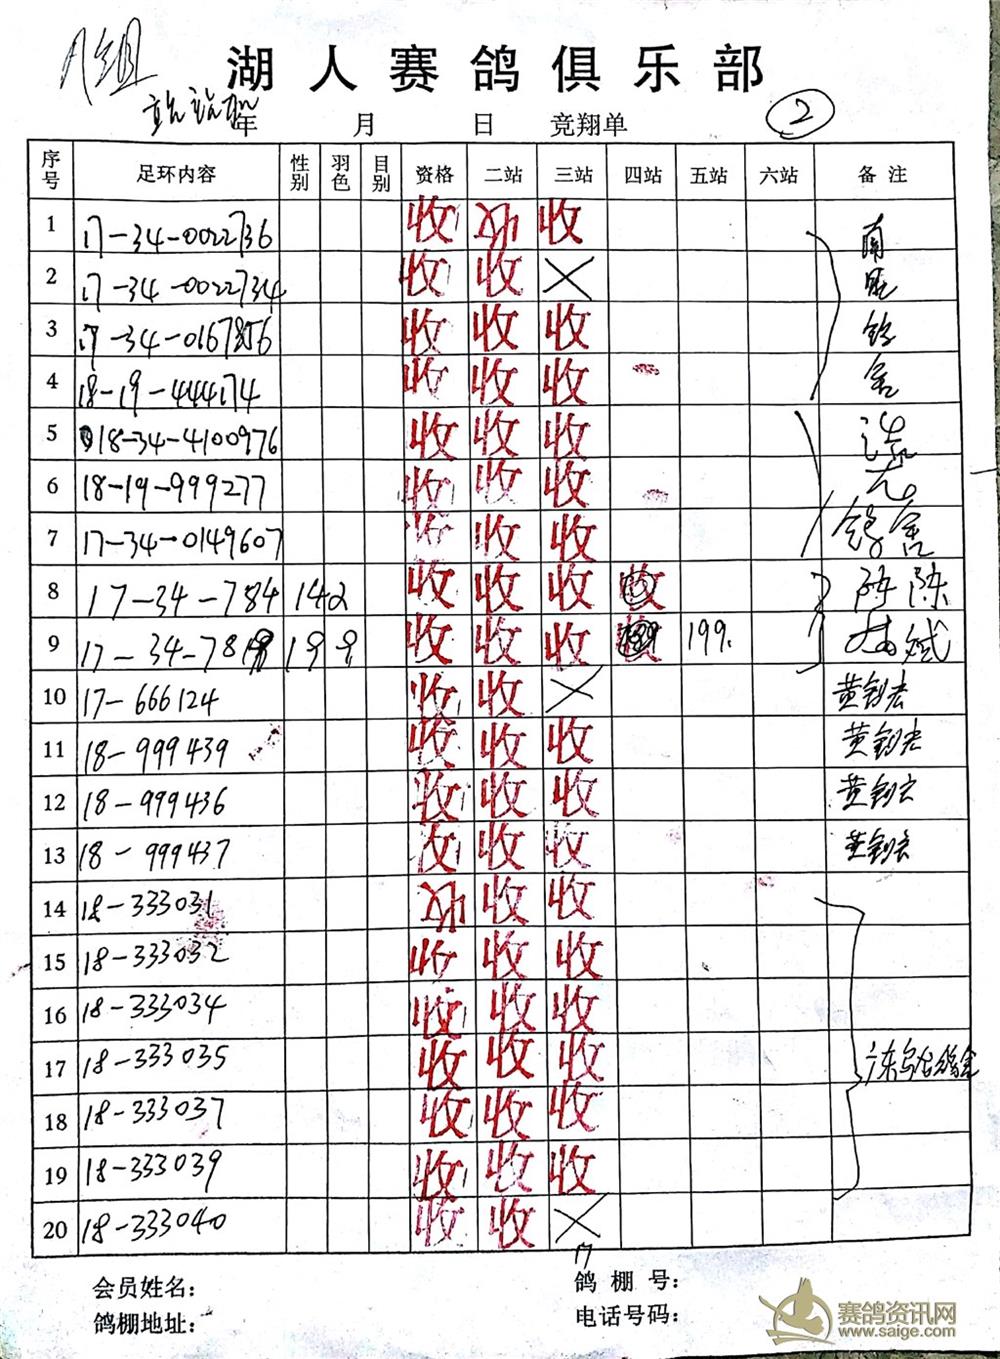 A组
湖人赛鸽俱乐部
年 月 日 竞翔单 2
序号 足环内容 性别 羽色 目别 资格 二站 三站 四站 五站 六站 备注
1 17-34-0022736 收 收 收
2 17-34-0022734 收 收 ×
3 17-34-0167856 收 收 收
4 18-19-444174 收 收 收
5 18-34-4100976 收 收 收
6 18-19-999277 收 收 收
7 17-34-0149607 收 收 收 鸽舍
8 17-34-784 142 收 收 收 收
9 17-34-781 199 收 收 收 收 199.
10 17-666124 收 收 × 黄钊宏
11 18-999439 收 收 收 黄钊宏
12 18-999436 收 收 收 黄钊宏
13 18-999437 收 收 收 黄钊宏
14 18-333031 收 收 收
15 18-333032 收 收 收
16 18-333034 收 收 收
17 18-333035 收 收 收
18 18-333037 收 收 收
19 18-333039 收 收 收
20 18-333040 收 收 ×
17
会员姓名： 鸽棚号：
鸽棚地址： 电话号码：
赛鸽资讯网
www.saige.com